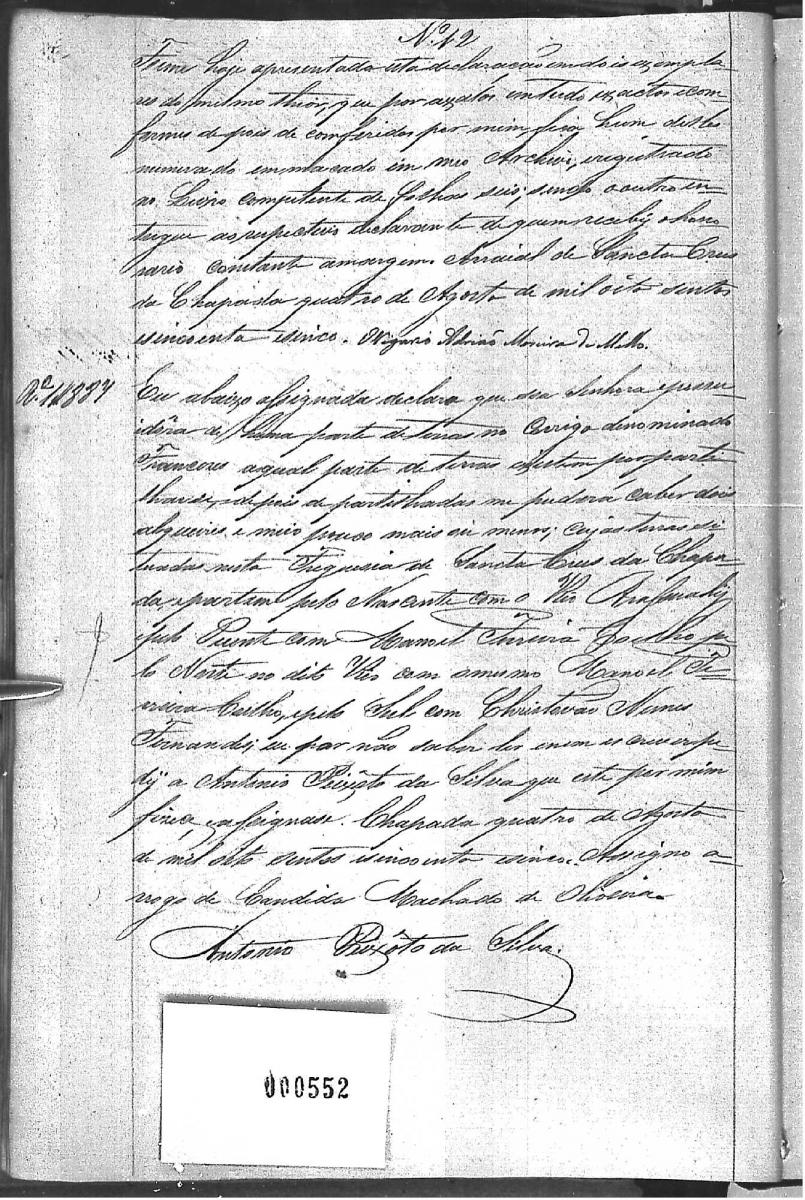 Nº 12
Foime hoje apresentada esta declaração em dois exempla-
res do mesmo theor, que por axalos em tudo exactos e com-
formes de pois de comferidos por mim fica hum delles
numerado emmacado em meo Archivo, e registrado
no Livro competente de folhas seis; sendo o outro en-
tregue ao respectivo declarante de quem recebij o hono-
rario constante amargem. Arraial de Sancta Crus
da Chapada quatro de Agosto de mil oito sentos
esincoenta esinco. O Vigario Adrião Moreira de Mello.
Eu abaixo assignada declara que sou Senhora epossu-
idôra de huma parte de terras no Corrigo denominado
a qual parte de terras existem por parti
thar e depois de partilhadas me podera caber dois
alqueires e meio pouco mais ou menos; cujas terras si-
tuadas nesta Freguesia de Sancta Crus da Chapa-
da, e partem pelo Nascente com o Rio Arassuahij
e pelo Puente com Manoel Ferreira Coelho pe-
lo Norte no dito Rio com o mesmo Manoel Fe-
rreira Coelho, e pelo Sul com Christovão Nunes
Fernandes, eu por não saber ler enem escrever pe-
dij a Antonio Peixôto da Silva que este por mim
fizeçe, e assignase. Chapada quatro de Agosto
de mil oito sentos esincoenta esinco. Assigno a-
rogo de Candida Machado de Oliveira.
Antonio Peixôto da Silva.
000552